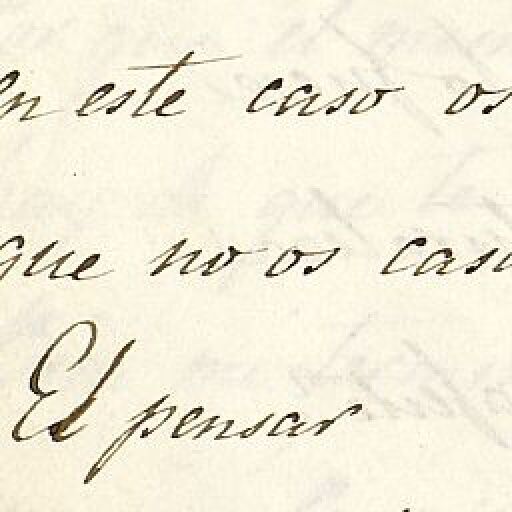 en este caso os
que no os cas
El pensar